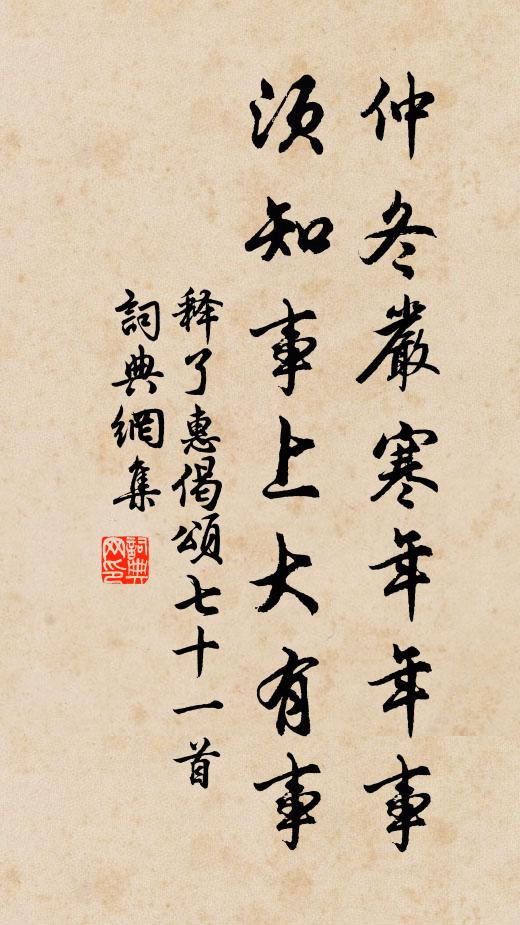 仲冬嚴寒年年事
須知事上大有事
释了惠偈頌七十一首
詞典網集
詞典網印